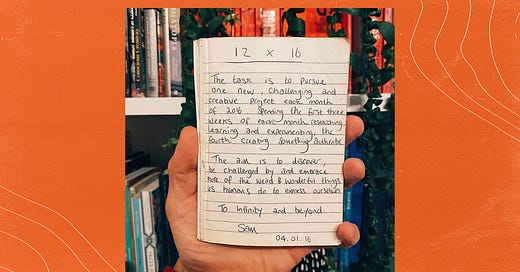 12 x 16
The task is to pursue
one new, challenging and
creative project each month
of 2016. Spending the first three
weeks of each month researching,
learning and experimenting, the
fourth creating something authentic.
The aim is to discover,
be challenged by and embrace
more of the weird & wonderful things
us humans do to express ourselves.
To infinity and beyond.
Sam
04.01.16